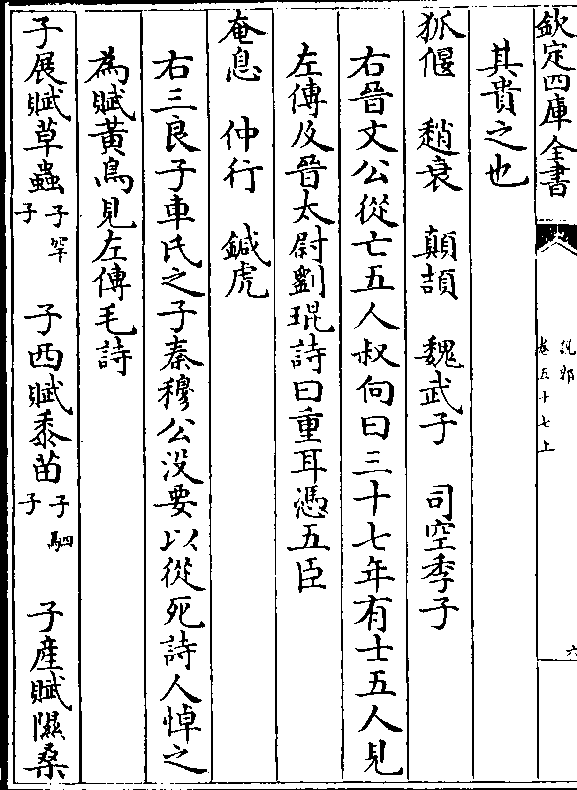 欽定四庫全書
說郛
卷五十七上
六
其貴之也
狐偃　趙衰　顛頡　魏武子　司空季子
右晉文公從亡五人叔向曰三十七年有士五人見
左傳及晉太尉劉琨詩曰重耳憑五臣
奄息　仲行　鍼虎
右三良子車氏之子秦穆公没要以從死詩人悼之
為賦黃鳥見左傳毛詩
子展賦草蟲子罕子　子西賦黍苗子駟子　子産賦隰桑